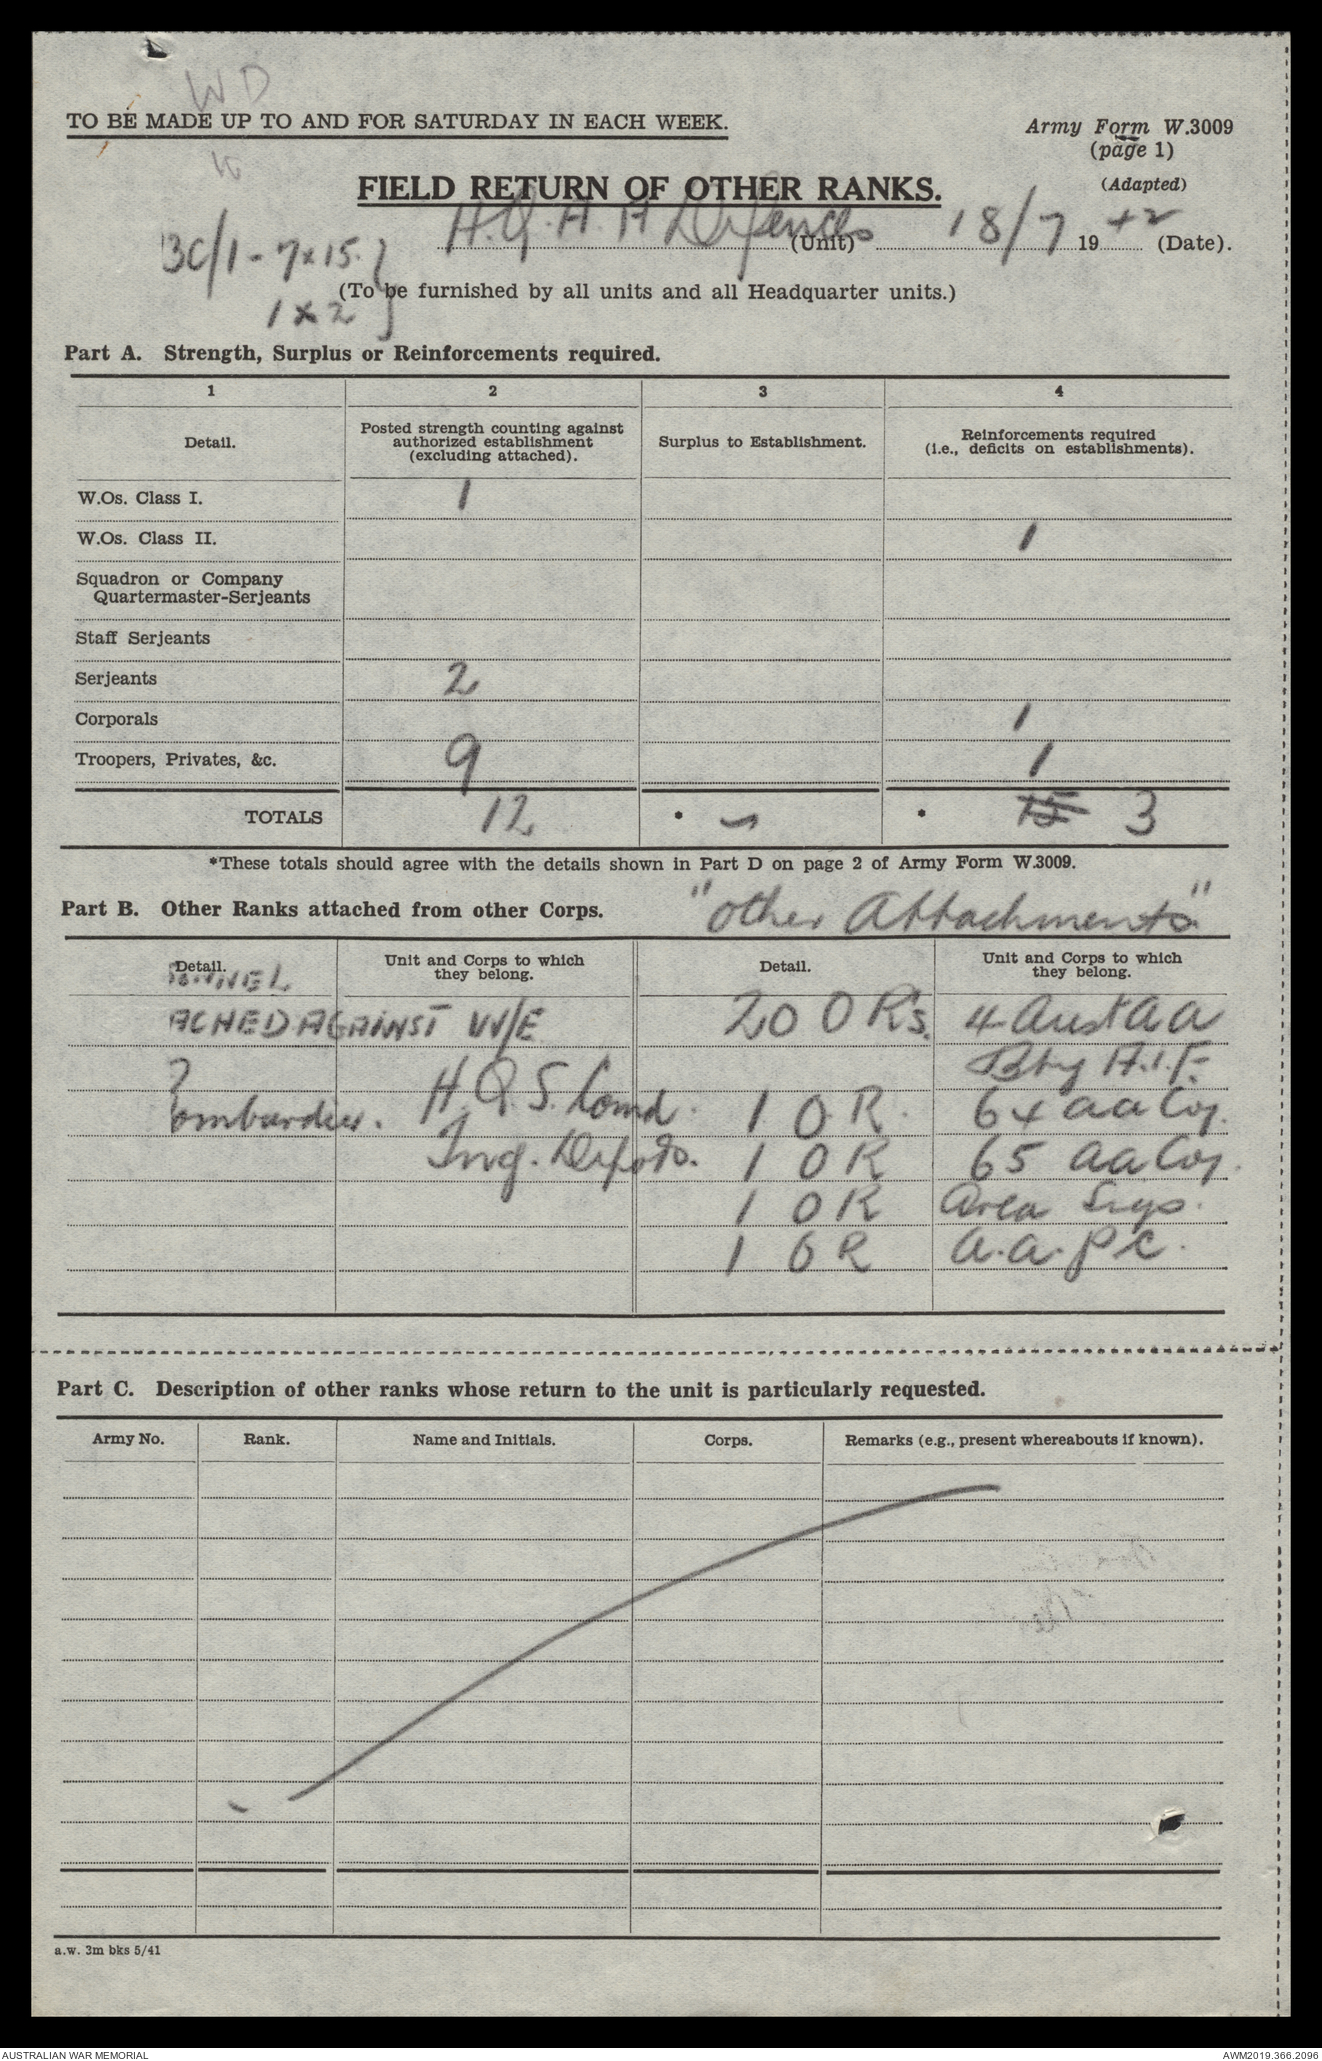 WD
TO BE MADE UP TO AND FOR SATURDAY IN EACH WEEK.
Army Form W.3009
(page 1)
(Adapted)
FIELD RETURN OF OTHER RANKS.
H.Q. A A Defences (Unit) 18/7 1942 (Date).
BC/1 - 7 x 15 }
1 x 2
(To be furnished by all units and all Headquarter units.)
Part A. Strength, Surplus or Reinforcements required.
1 2 3 4
Detail. Posted strength counting against authorized establishment (excluding attached). Surplus to Establishment. Reinforcements required (i.e., deficits on establishments).
W.Os. Class I. 1
W.Os. Class II. 1
Squadron or Company
Quartermaster-Serjeants
Staff Serjeants
Serjeants 2
Corporals 1
Troopers, Privates, &c. 9 1
TOTALS 12 * * 15 3
*These totals should agree with the details shown in Part D on page 2 of Army Form W.3009.
Part B. Other Ranks attached from other Corps. "Other Attachments"
Detail. Unit and Corps to which they belong. Detail. Unit and Corps to which they belong.
NNEL
ACHED AGAINST W/E 20 O R's. 4 Aust A A
Bty A.I.F.
ombardier. H.Q. S. Comd. 1 O.R. 64 aa Coy.
Trng. Depots. 1 O R 65 aa Coy.
1 O R Area Sigs.
1 O R A.A.P.C.
Part C. Description of other ranks whose return to the unit is particularly requested.
Army No. Rank. Name and Initials. Corps. Remarks (e.g., present whereabouts if known).
a.w. 3m bks 5/41
AUSTRALIAN WAR MEMORIAL AWM2019.366.2096